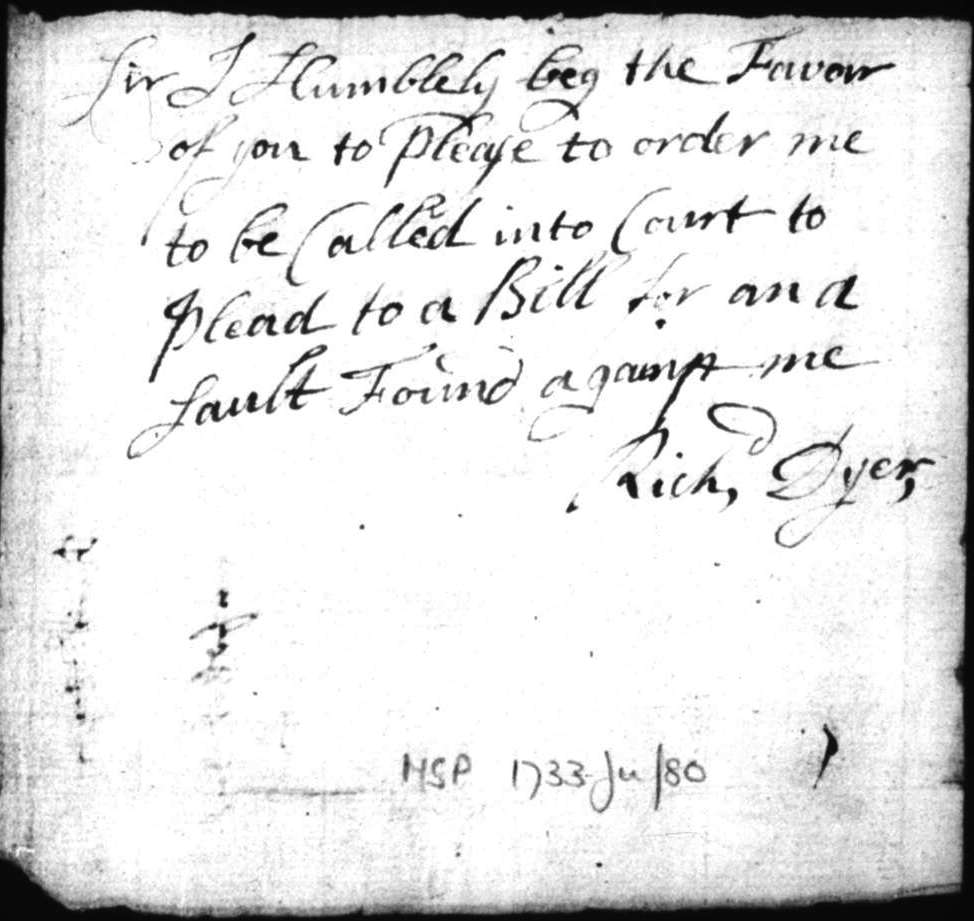 Sir I Humblely beg the Favour
of you to Please to order me
to be Called into Court to
Plead to a Bill for an a
Sault Found against me
Richd, Dyer,
MSP 1733 Ju/80